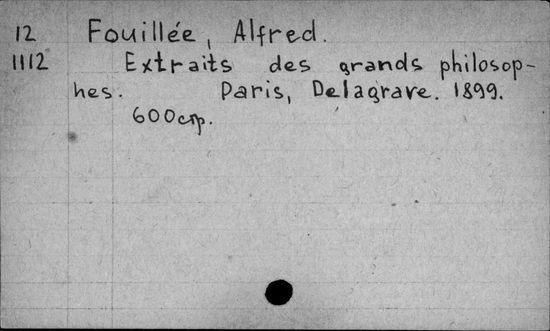 12 Fouillée, Alfred.
1112 Extraits des grands philosop-
hes. Paris, Delagrave. 1899.
600стр.